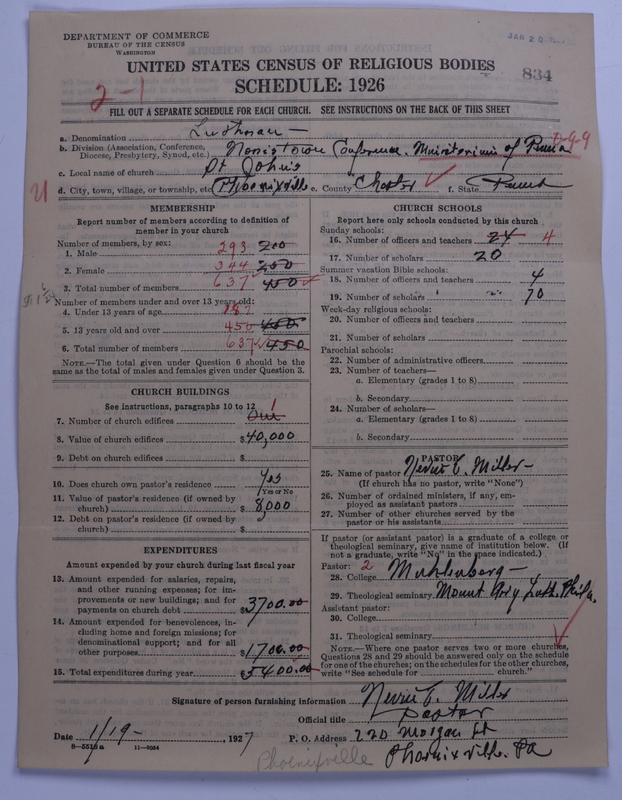 DEPARTMENT OF COMMERCE
BUREAU OF THE CENSUS
WASHINGTON
JAN 20
UNITED STATES CENSUS OF RELIGIOUS BODIES
SCHEDULE: 1926
834
2-1
FILL OUT A SEPARATE SCHEDULE FOR EACH CHURCH. SEE INSTRUCTIONS ON THE BACK OF THIS SHEET
a. Denomination Lutheran —
b. Division (Association, Conference, Diocese, Presbytery, Synod, etc.) Norristown Conference. Ministerium of Penna
c. Local name of church St Johns
d. City, town, village, or township, etc. Phoenixville e. County Chester f. State Penna
MEMBERSHIP
Report number of members according to definition of member in your church
Number of members, by sex:
1. Male 293 200
2. Female 344 250
3. Total number of members 637 450
Number of members under and over 13 years old:
4. Under 13 years of age 187
5. 13 years old and over 450 450
6. Total number of members 637 450
NOTE.—The total given under Question 6 should be the same as the total of males and females given under Question 3.
CHURCH BUILDINGS
See instructions, paragraphs 10 to 12
7. Number of church edifices One 1
8. Value of church edifices $40,000
9. Debt on church edifices $
10. Does church own pastor's residence Yes
Yes or No
11. Value of pastor's residence (if owned by church) $8,000
12. Debt on pastor's residence (if owned by church) $
EXPENDITURES
Amount expended by your church during last fiscal year
13. Amount expended for salaries, repairs, and other running expenses; for improvements or new buildings; and for payments on church debt $3700.00
14. Amount expended for benevolences, including home and foreign missions; for denominational support; and for all other purposes $1700.00
15. Total expenditures during year $5400.00
CHURCH SCHOOLS
Report here only schools conducted by this church
Sunday schools:
16. Number of officers and teachers 24 4
17. Number of scholars 20
Summer vacation Bible schools:
18. Number of officers and teachers 4
19. Number of scholars 70
Week-day religious schools:
20. Number of officers and teachers
21. Number of scholars
Parochial schools:
22. Number of administrative officers
23. Number of teachers—
a. Elementary (grades 1 to 8)
b. Secondary
24. Number of scholars—
a. Elementary (grades 1 to 8)
b. Secondary
PASTOR
25. Name of pastor Nevin E. Miller —
(If church has no pastor, write "None")
26. Number of ordained ministers, if any, employed as assistant pastors
27. Number of other churches served by the pastor or his assistants
If pastor (or assistant pastor) is a graduate of a college or theological seminary, give name of institution below. (If not a graduate, write "No" in the space indicated.)
Pastor: 2
28. College Muhlenberg —
29. Theological seminary Mount Airy Luth. Phila.
Assistant pastor:
30. College
31. Theological seminary
NOTE.—Where one pastor serves two or more churches, Questions 28 and 29 should be answered only on the schedule for one of the churches; on the schedules for the other churches, write "See schedule for church."
Signature of person furnishing information Nevin E. Miller
Official title Pastor
Date 1/19 -, 1927 P. O. Address 220 Morgan St
Phoenixville. Pa
8-5518a 11-9034
Phoenixville